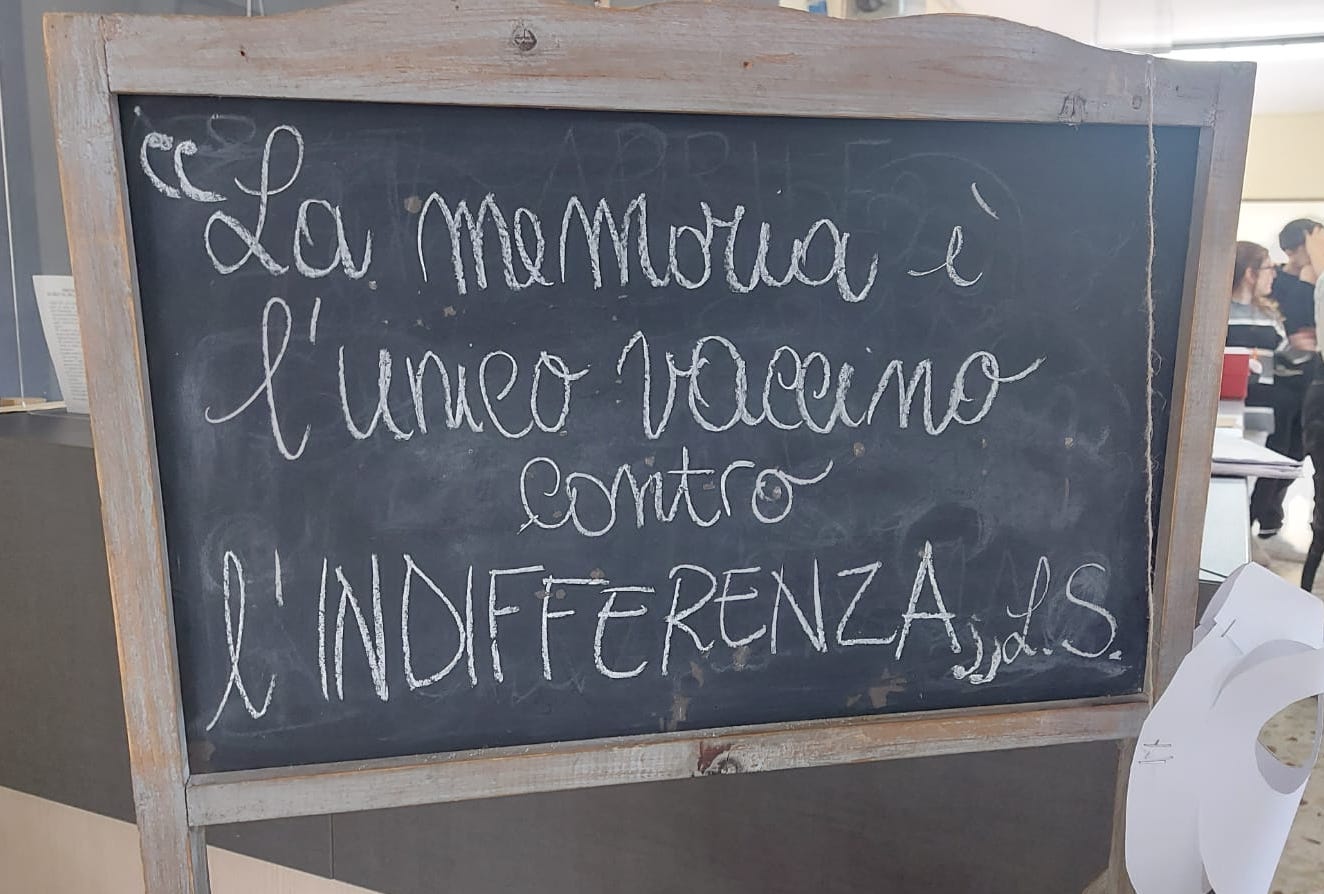 “La memoria è
l'unico vaccino
contro
l'INDIFFERENZA„ L.S.